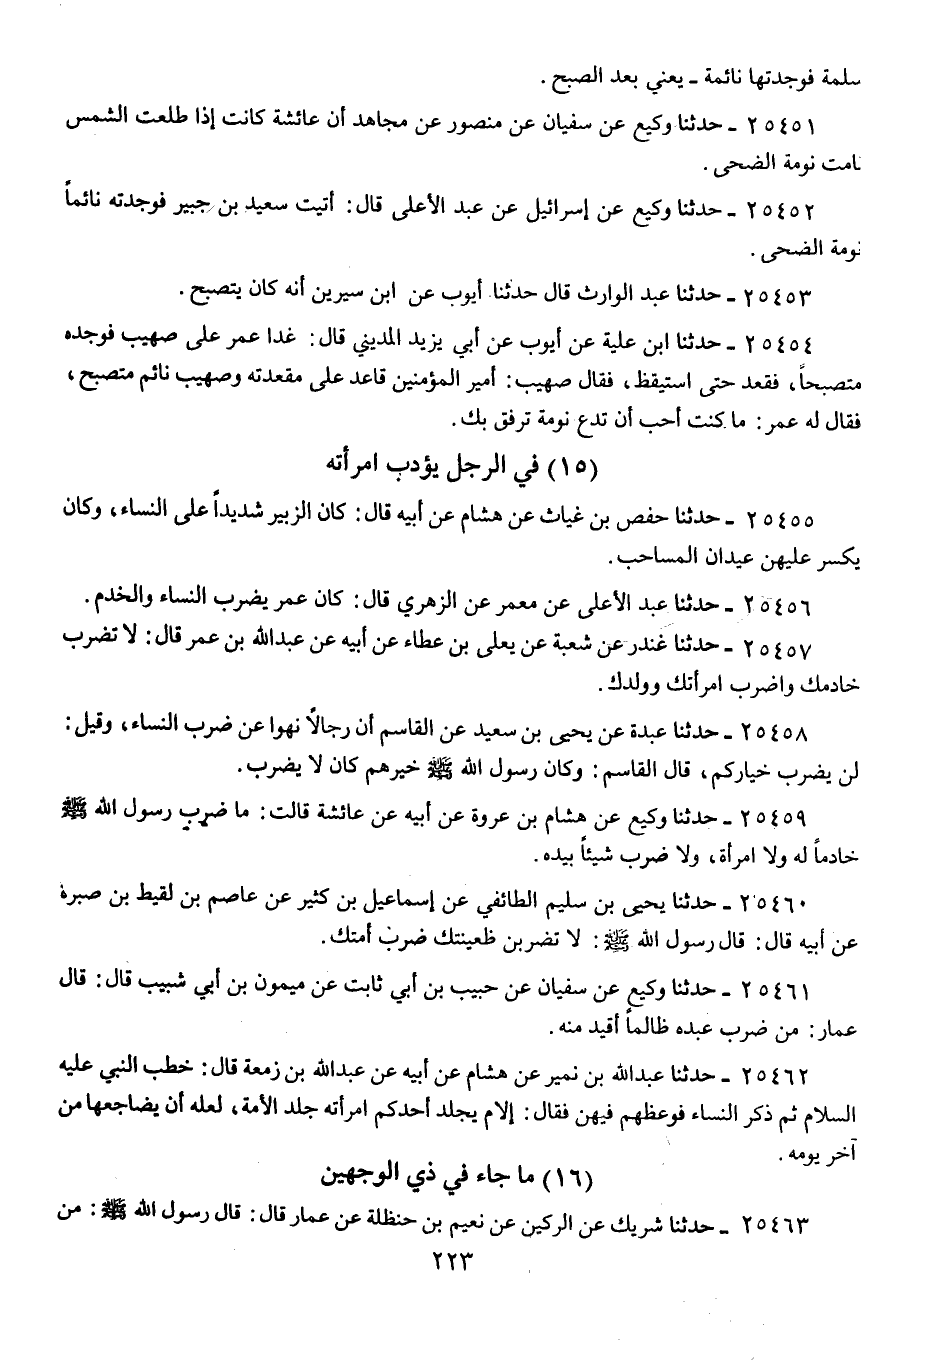 سلمة فوجدتها نائمة ـ يعني بعد الصبح .
٢٥٤٥١ ـ حدثنا وكيع عن سفيان عن منصور عن مجاهد أن عائشة كانت إذا طلعت الشمس
نامت نومة الضحى .
٢٥٤٥٢ ـ حدثنا وكيع عن إسرائيل عن عبد الأعلى قال: أتيت سعيد بن جبير فوجدته نائماً
نومة الضحى .
٢٥٤٥٣ ـ حدثنا عبد الوارث قال حدثنا أيوب عن ابن سيرين أنه كان يتصبح .
٢٥٤٥٤ ـ حدثنا ابن علية عن أيوب عن أبي يزيد المديني قال: غدا عمر على صهيب فوجده
متصبحاً، فقعد حتى استيقظ، فقال صهيب: أمير المؤمنين قاعد على مقعدته وصهيب نائم متصبح،
فقال له عمر: ما كنت أحب أن تدع نومة ترفق بك.
(١٥) في الرجل يؤدب امرأته
٢٥٤٥٥ ـ حدثنا حفص بن غياث عن هشام عن أبيه قال: كان الزبير شديداً على النساء، وكان
يكسر عليهن عيدان المساحب.
٢٥٤٥٦ ـ حدثنا عبد الأعلى عن معمر عن الزهري قال: كان عمر يضرب النساء والخدم.
٢٥٤٥٧ ـ حدثنا غندر عن شعبة عن يعلى بن عطاء عن أبيه عن عبدالله بن عمر قال: لا تضرب
خادمك واضرب امرأتك وولدك.
٢٥٤٥٨ ـ حدثنا عبدة عن يحيى بن سعيد عن القاسم أن رجالاً نهوا عن ضرب النساء، وقيل:
لن يضرب خياركم، قال القاسم: وكان رسول الله ﷺ خيرهم كان لا يضرب.
٢٥٤٥٩ ـ حدثنا وكيع عن هشام بن عروة عن أبيه عن عائشة قالت: ما ضرب رسول الله ﷺ
خادماً له ولا امرأة، ولا ضرب شيئاً بيده.
٢٥٤٦٠ ـ حدثنا يحيى بن سليم الطائفي عن إسماعيل بن كثير عن عاصم بن لقيط بن صبرة
عن أبيه قال: قال رسول الله ﷺ: لا تضربن ظعينتك ضرب أمتك.
٢٥٤٦١ ـ حدثنا وكيع عن سفيان عن حبيب بن أبي ثابت عن ميمون بن أبي شبيب قال: قال
عمار: من ضرب عبده ظالماً أقيد منه.
٢٥٤٦٢ ـ حدثنا عبدالله بن نمير عن هشام عن أبيه عن عبدالله بن زمعة قال: خطب النبي عليه
السلام ثم ذكر النساء فوعظهم فيهن فقال: إلام يجلد أحدكم امرأته جلد الأمة، لعله أن يضاجعها من
آخر يومه .
(١٦) ما جاء في ذي الوجهين
٢٥٤٦٣ ـ حدثنا شريك عن الركين عن نعيم بن حنظلة عن عمار قال: قال رسول الله ﷺ: من
٢٢٣